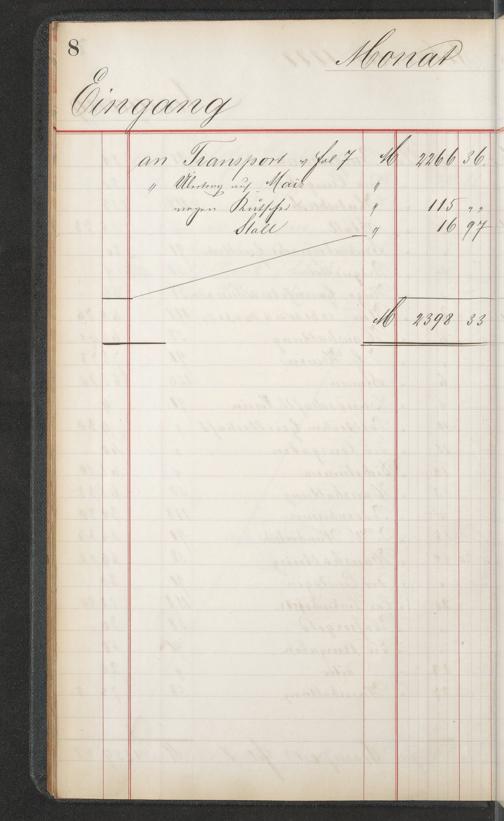 8
Monat
Eingang
an Transport v fol 7 M 2266 36
" Übertrag auf Mai "
wegen Kutscher " 115 " "
Stall " 16 97
M 2398 33